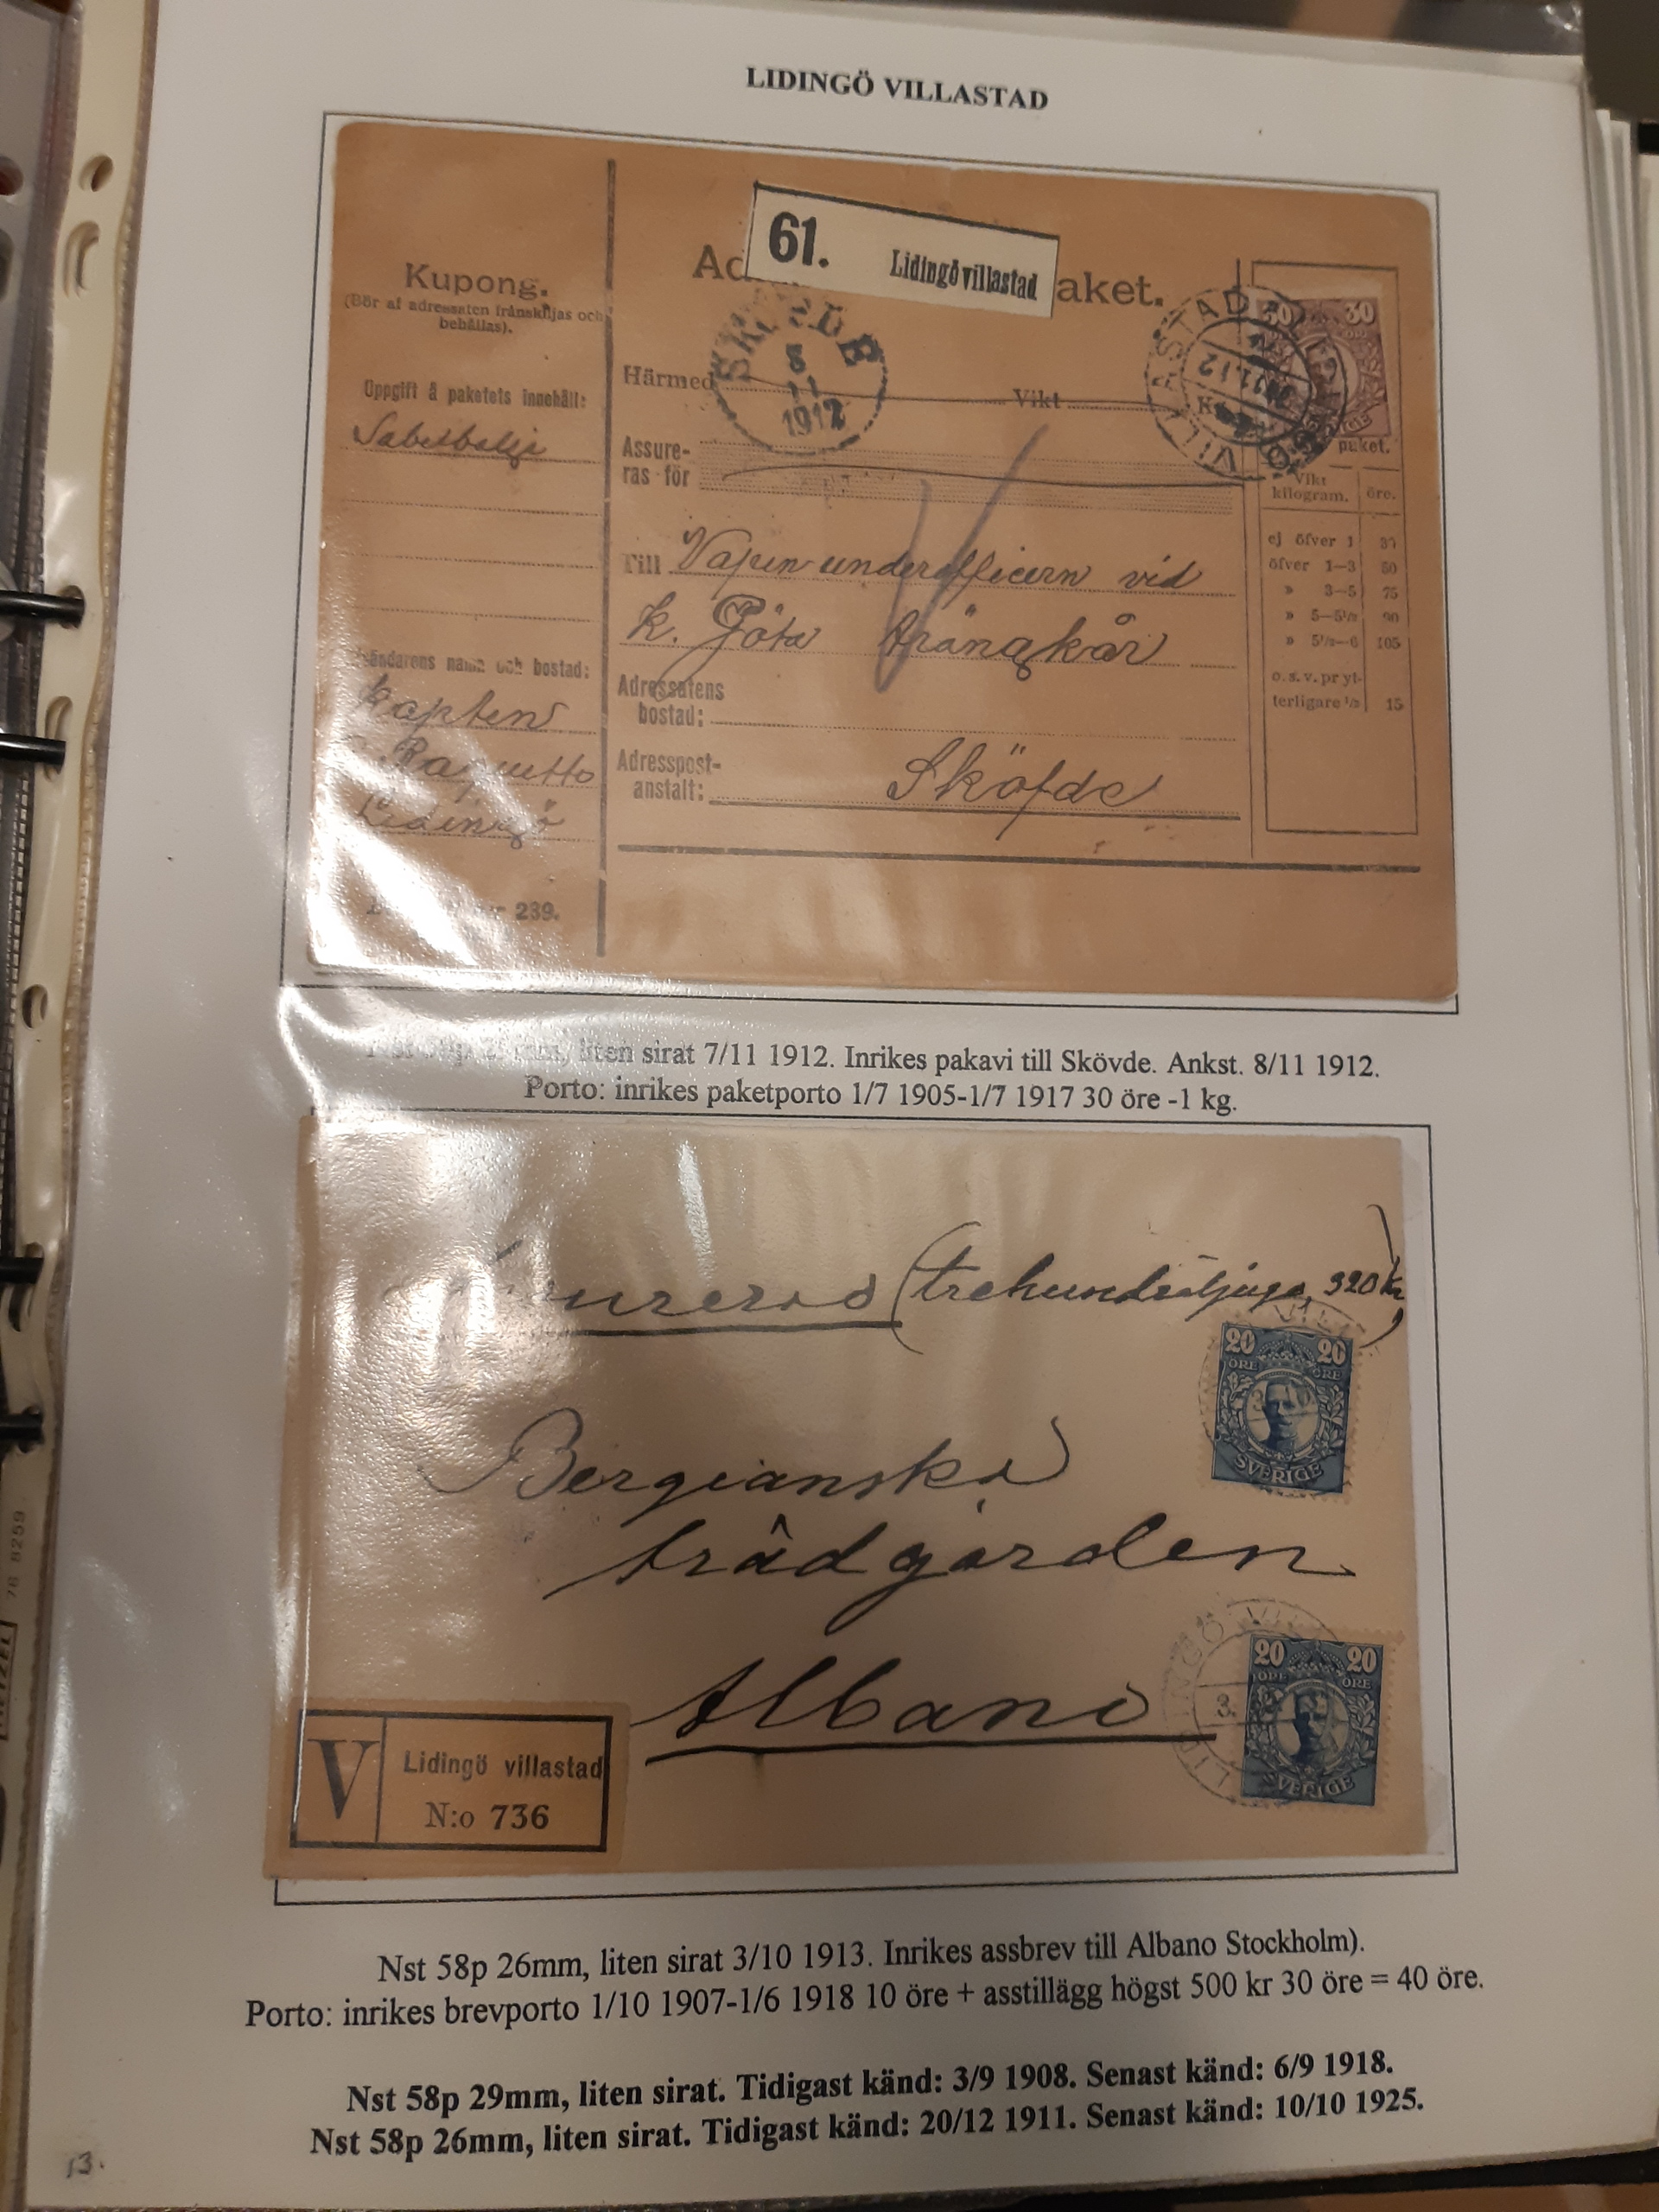 LIDINGÖ VILLASTAD
61. Lidingö villastad
Kupong.
(Bör af adressaten frånskiljas och
behållas).
Uppgift å paketets innehåll:
Sabelbalja
aket.
SKÖFDE
8
11
1912
Härmed
Vikt
VILLASTAD
11.12
30 30
paket.
Assure-
ras för
Vikt
kilogram. öre.
ej öfver 1 30
öfver 1—3 50
» 3—5 75
» 5—5½ 90
» 5½—6 105
o. s. v. pr yt-
terligare ½ 15
Till Vapenunderofficern vid
k. Göta trängkår
Adressatens
bostad:
Adresspost-
anstalt: Sköfde
sändarens namn och bostad:
Kapten
Lidingö
239.
liten sirat 7/11 1912. Inrikes pakavi till Skövde. Ankst. 8/11 1912.
Porto: inrikes paketporto 1/7 1905-1/7 1917 30 öre -1 kg.
(trehundratjugo, 320 kr)
20 20
ÖRE ÖRE
SVERIGE
Bergianska
trädgården
Albano
LIDINGÖ VILL
3.
20 20
ÖRE ÖRE
SVERIGE
V Lidingö villastad
N:o 736
Nst 58p 26mm, liten sirat 3/10 1913. Inrikes assbrev till Albano Stockholm).
Porto: inrikes brevporto 1/10 1907-1/6 1918 10 öre + asstillägg högst 500 kr 30 öre = 40 öre.
Nst 58p 29mm, liten sirat. Tidigast känd: 3/9 1908. Senast känd: 6/9 1918.
Nst 58p 26mm, liten sirat. Tidigast känd: 20/12 1911. Senast känd: 10/10 1925.
13.
78 8259